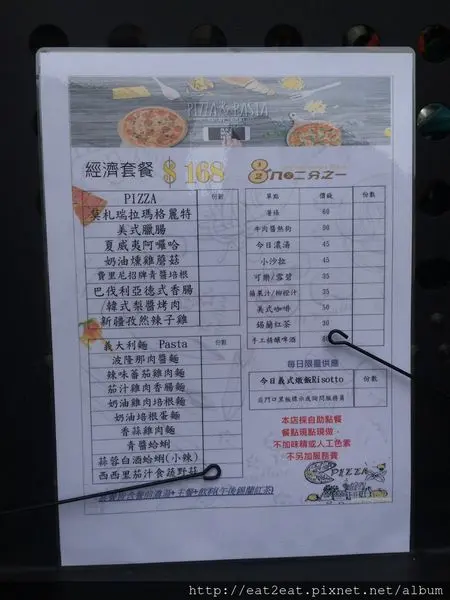 PIZZA & PASTA
經濟套餐 $168
PIZZA 份數
莫札瑞拉瑪格麗特
美式臘腸
夏威夷阿囉哈
奶油燻雞蘑菇
費里尼招牌青醬培根
巴伐利亞德式香腸
韓式梨醬烤肉
新疆孜然辣子雞
義大利麵 Pasta 份數
波隆那肉醬麵
辣味蕃茄雞肉麵
茄汁雞肉香腸麵
奶油雞肉培根麵
奶油培根蛋麵
香蒜雞肉麵
青醬蛤蜊
蒜蓉白酒蛤蜊(小辣)
西西里茄汁食蔬野菇
主餐+飲料(午後錫蘭紅茶)
8又二分之一
單點 價錢 份數
薯條 60
牛肉醬熱狗 90
今日濃湯 45
小沙拉 45
可樂/雪碧 35
蘋果汁/柳橙汁 35
美式咖啡 50
錫蘭紅茶 30
手工精釀啤酒
每日限量供應
今日義式燉飯Risotto 份數
依門口黑板標示或詢問服務員
本店採自助點餐
餐點現點現做,
不加味精或人工色素
不另加服務費
PIZZA
http://eat2eat.pixnet.net/album